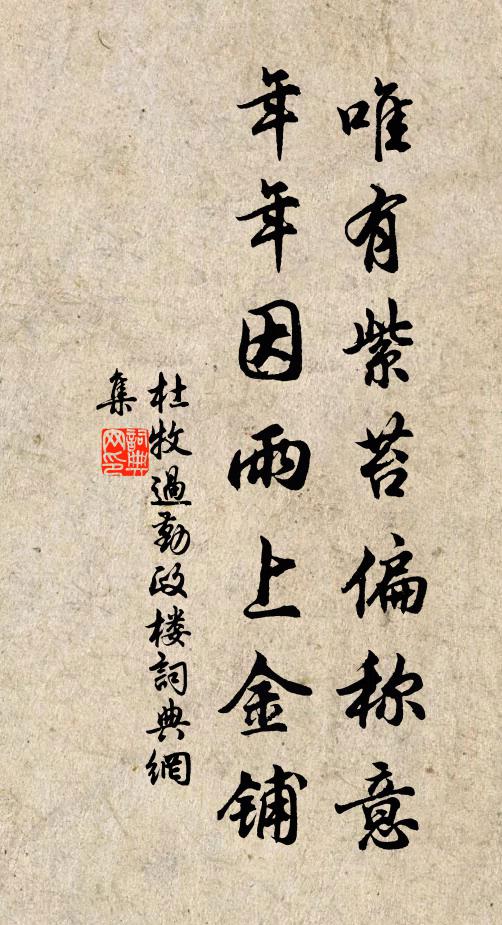 唯有紫苔偏称意
年年因雨上金铺
杜牧過勤政楼詞典網
集
詞典网印